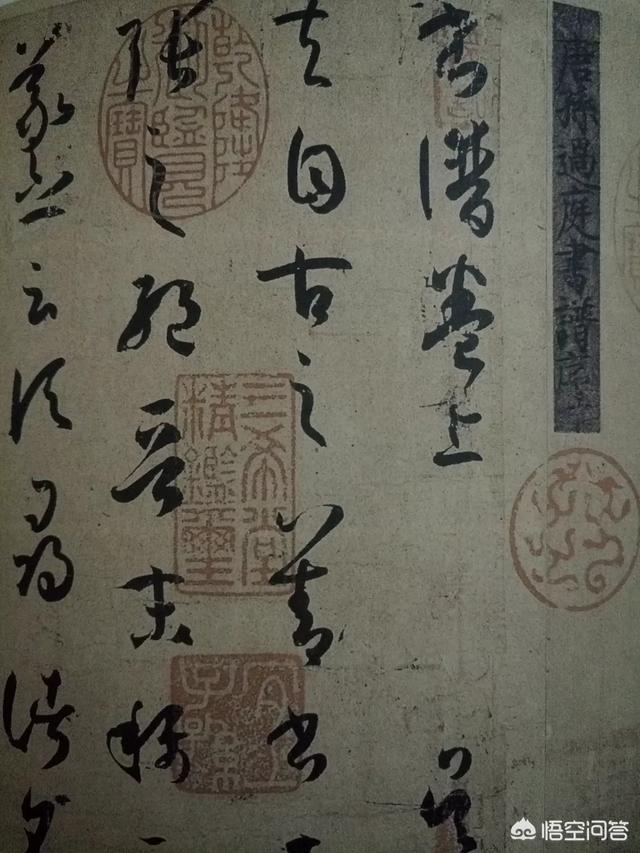 唐孫過庭書譜序
書譜卷上 吳
夫自古之善書
張之絕晉末稱
羲之云頃尋諸名
乾隆御覽之寶
三希堂精鑑璽
宜子孫
悟空问答